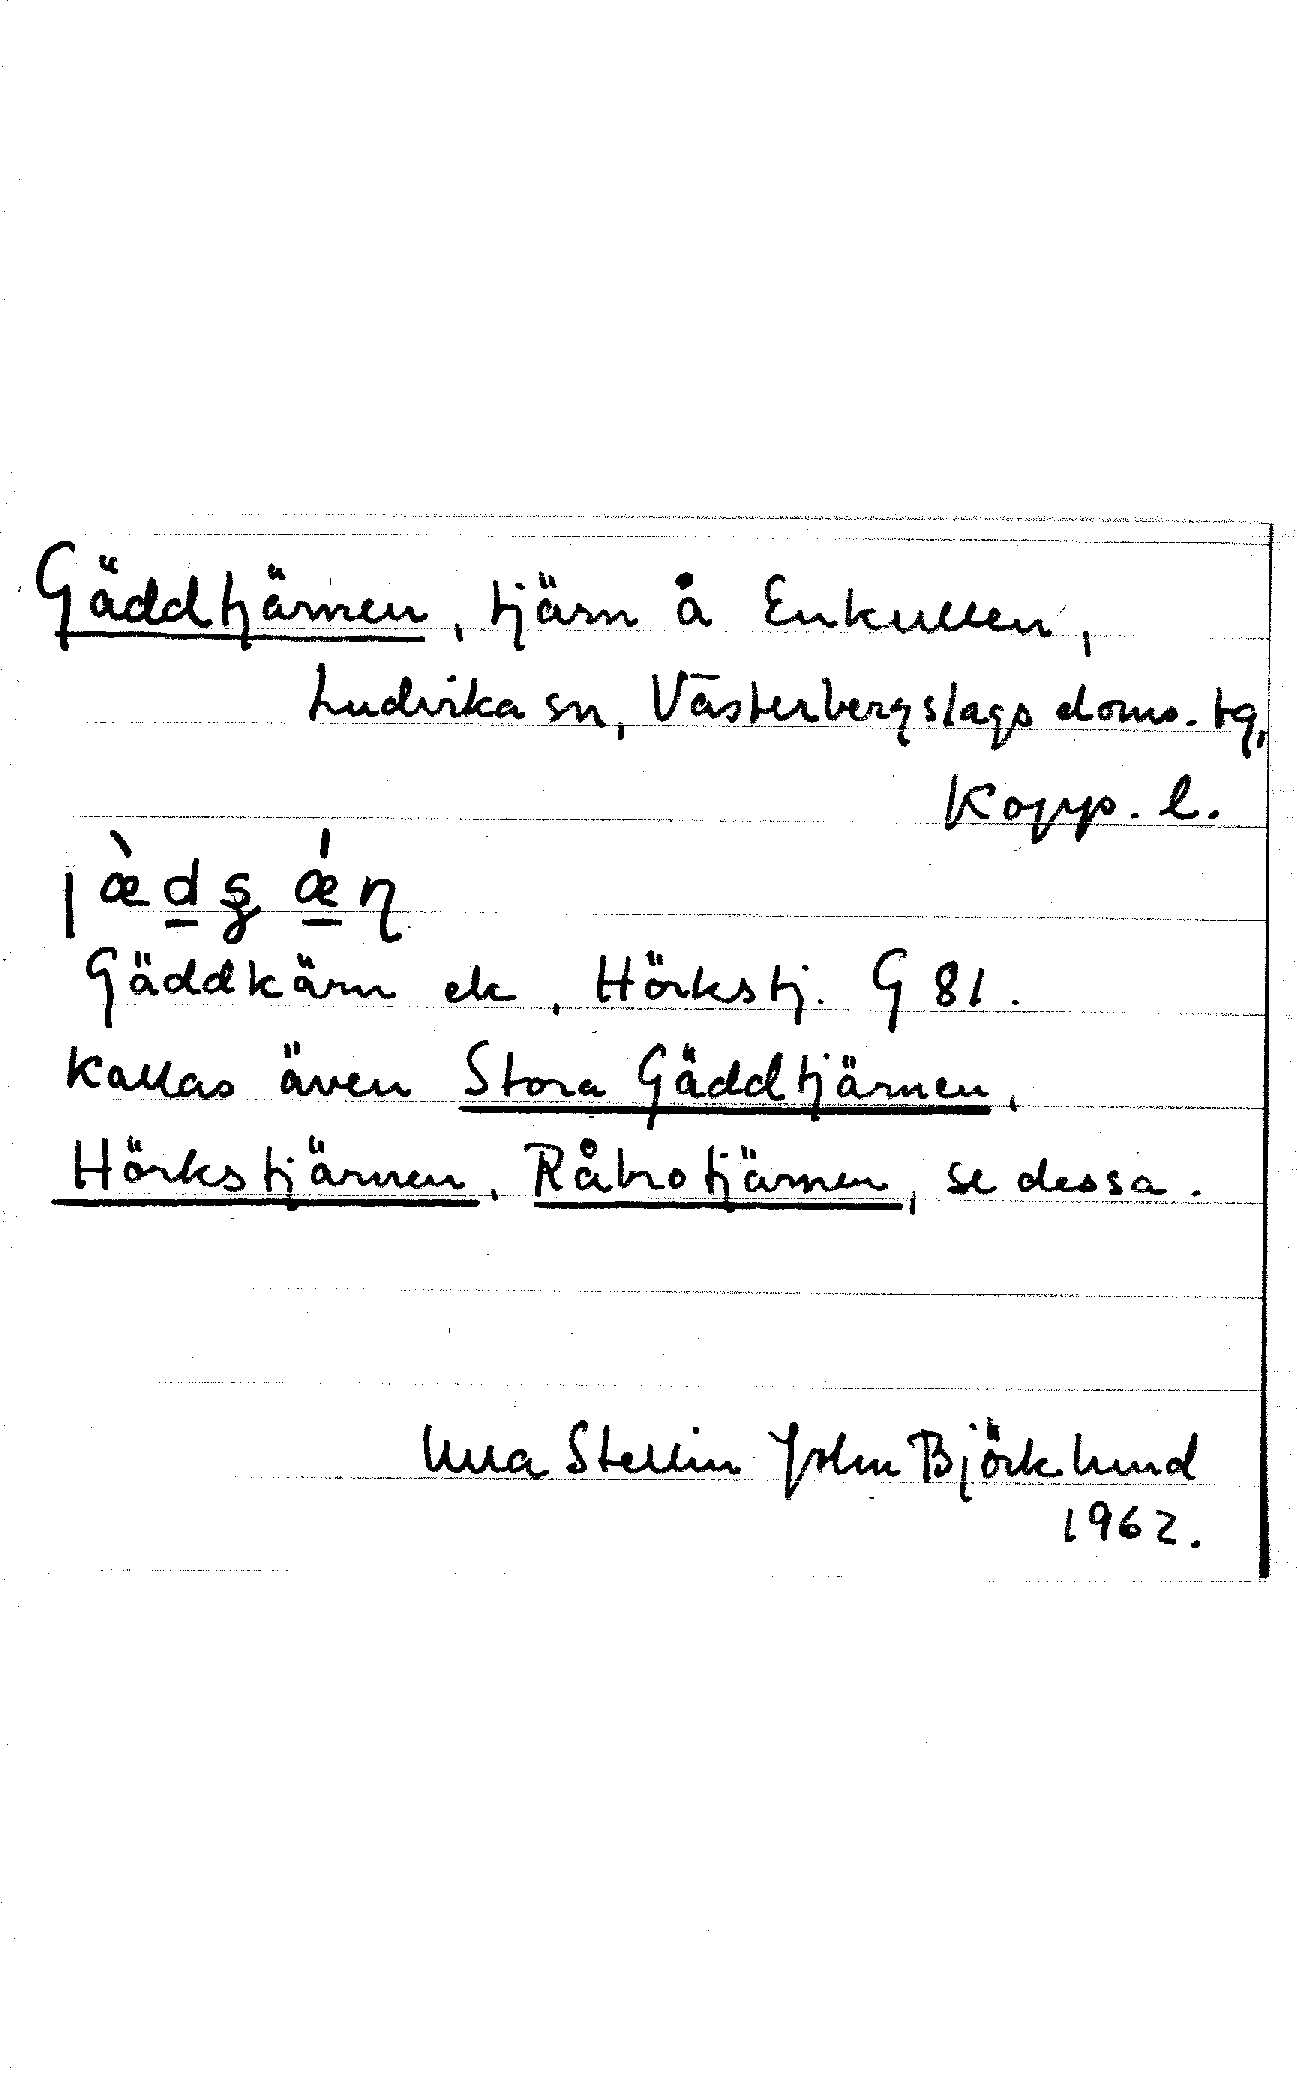 Gäddtjärnen, tjärn å Enkullen,
Ludvika sn, Västerbergslags doms. tg,
Kopp. l.
Gäddkärn ek, Hörkstj. G 81.
Kallas även Stora Gäddtjärnen,
Hörkstjärnen, Råbrotjärnen, se dessa.
Ulla Stellin John Björklund
1962.